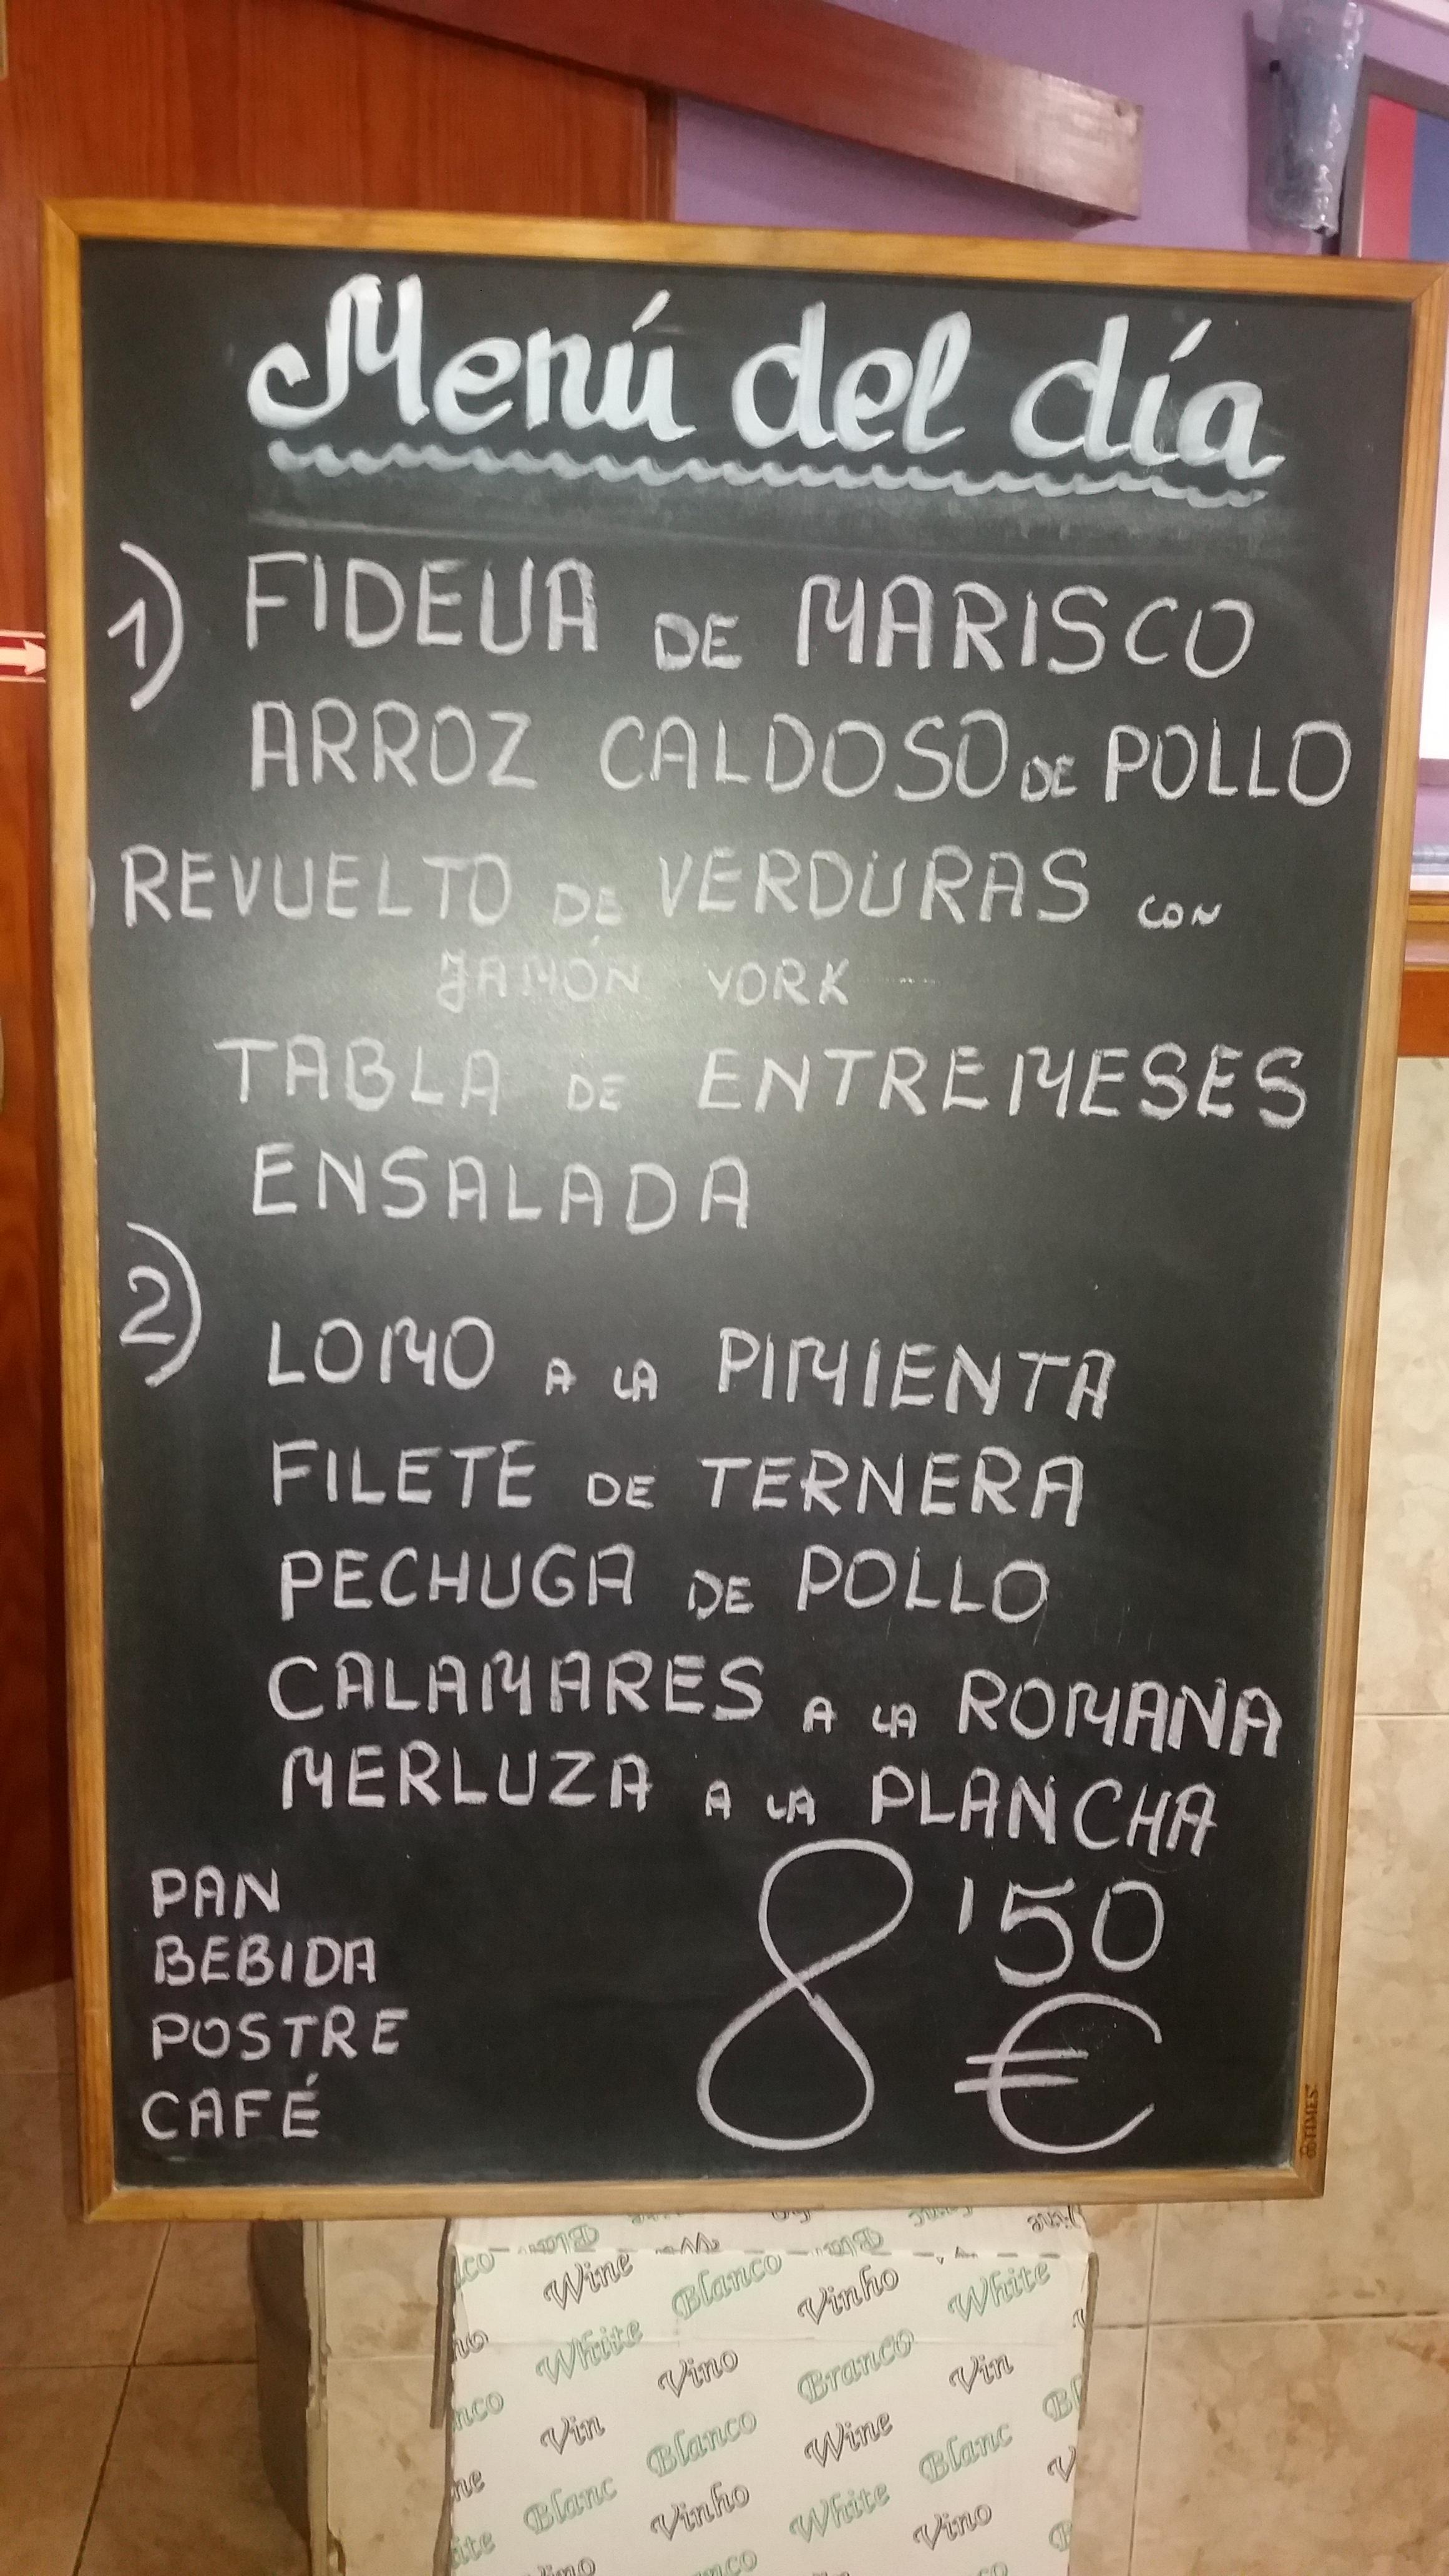 Menú del día
1) FIDEUA DE MARISCO
ARROZ CALDOSO DE POLLO
REVUELTO DE VERDURAS CON
JAMÓN YORK
TABLA DE ENTREMESES
ENSALADA
2)
LOMO A LA PIMIENTA
FILETE DE TERNERA
PECHUGA DE POLLO
CALAMARES A LA ROMANA
MERLUZA A LA PLANCHA
PAN
BEBIDA
POSTRE
CAFÉ
8'50
€
TIMES
Wine Blanco Vinho White
White Vino Branco Vin
Vin Blanco Wine Blanc
Blanc Vinho White Vino